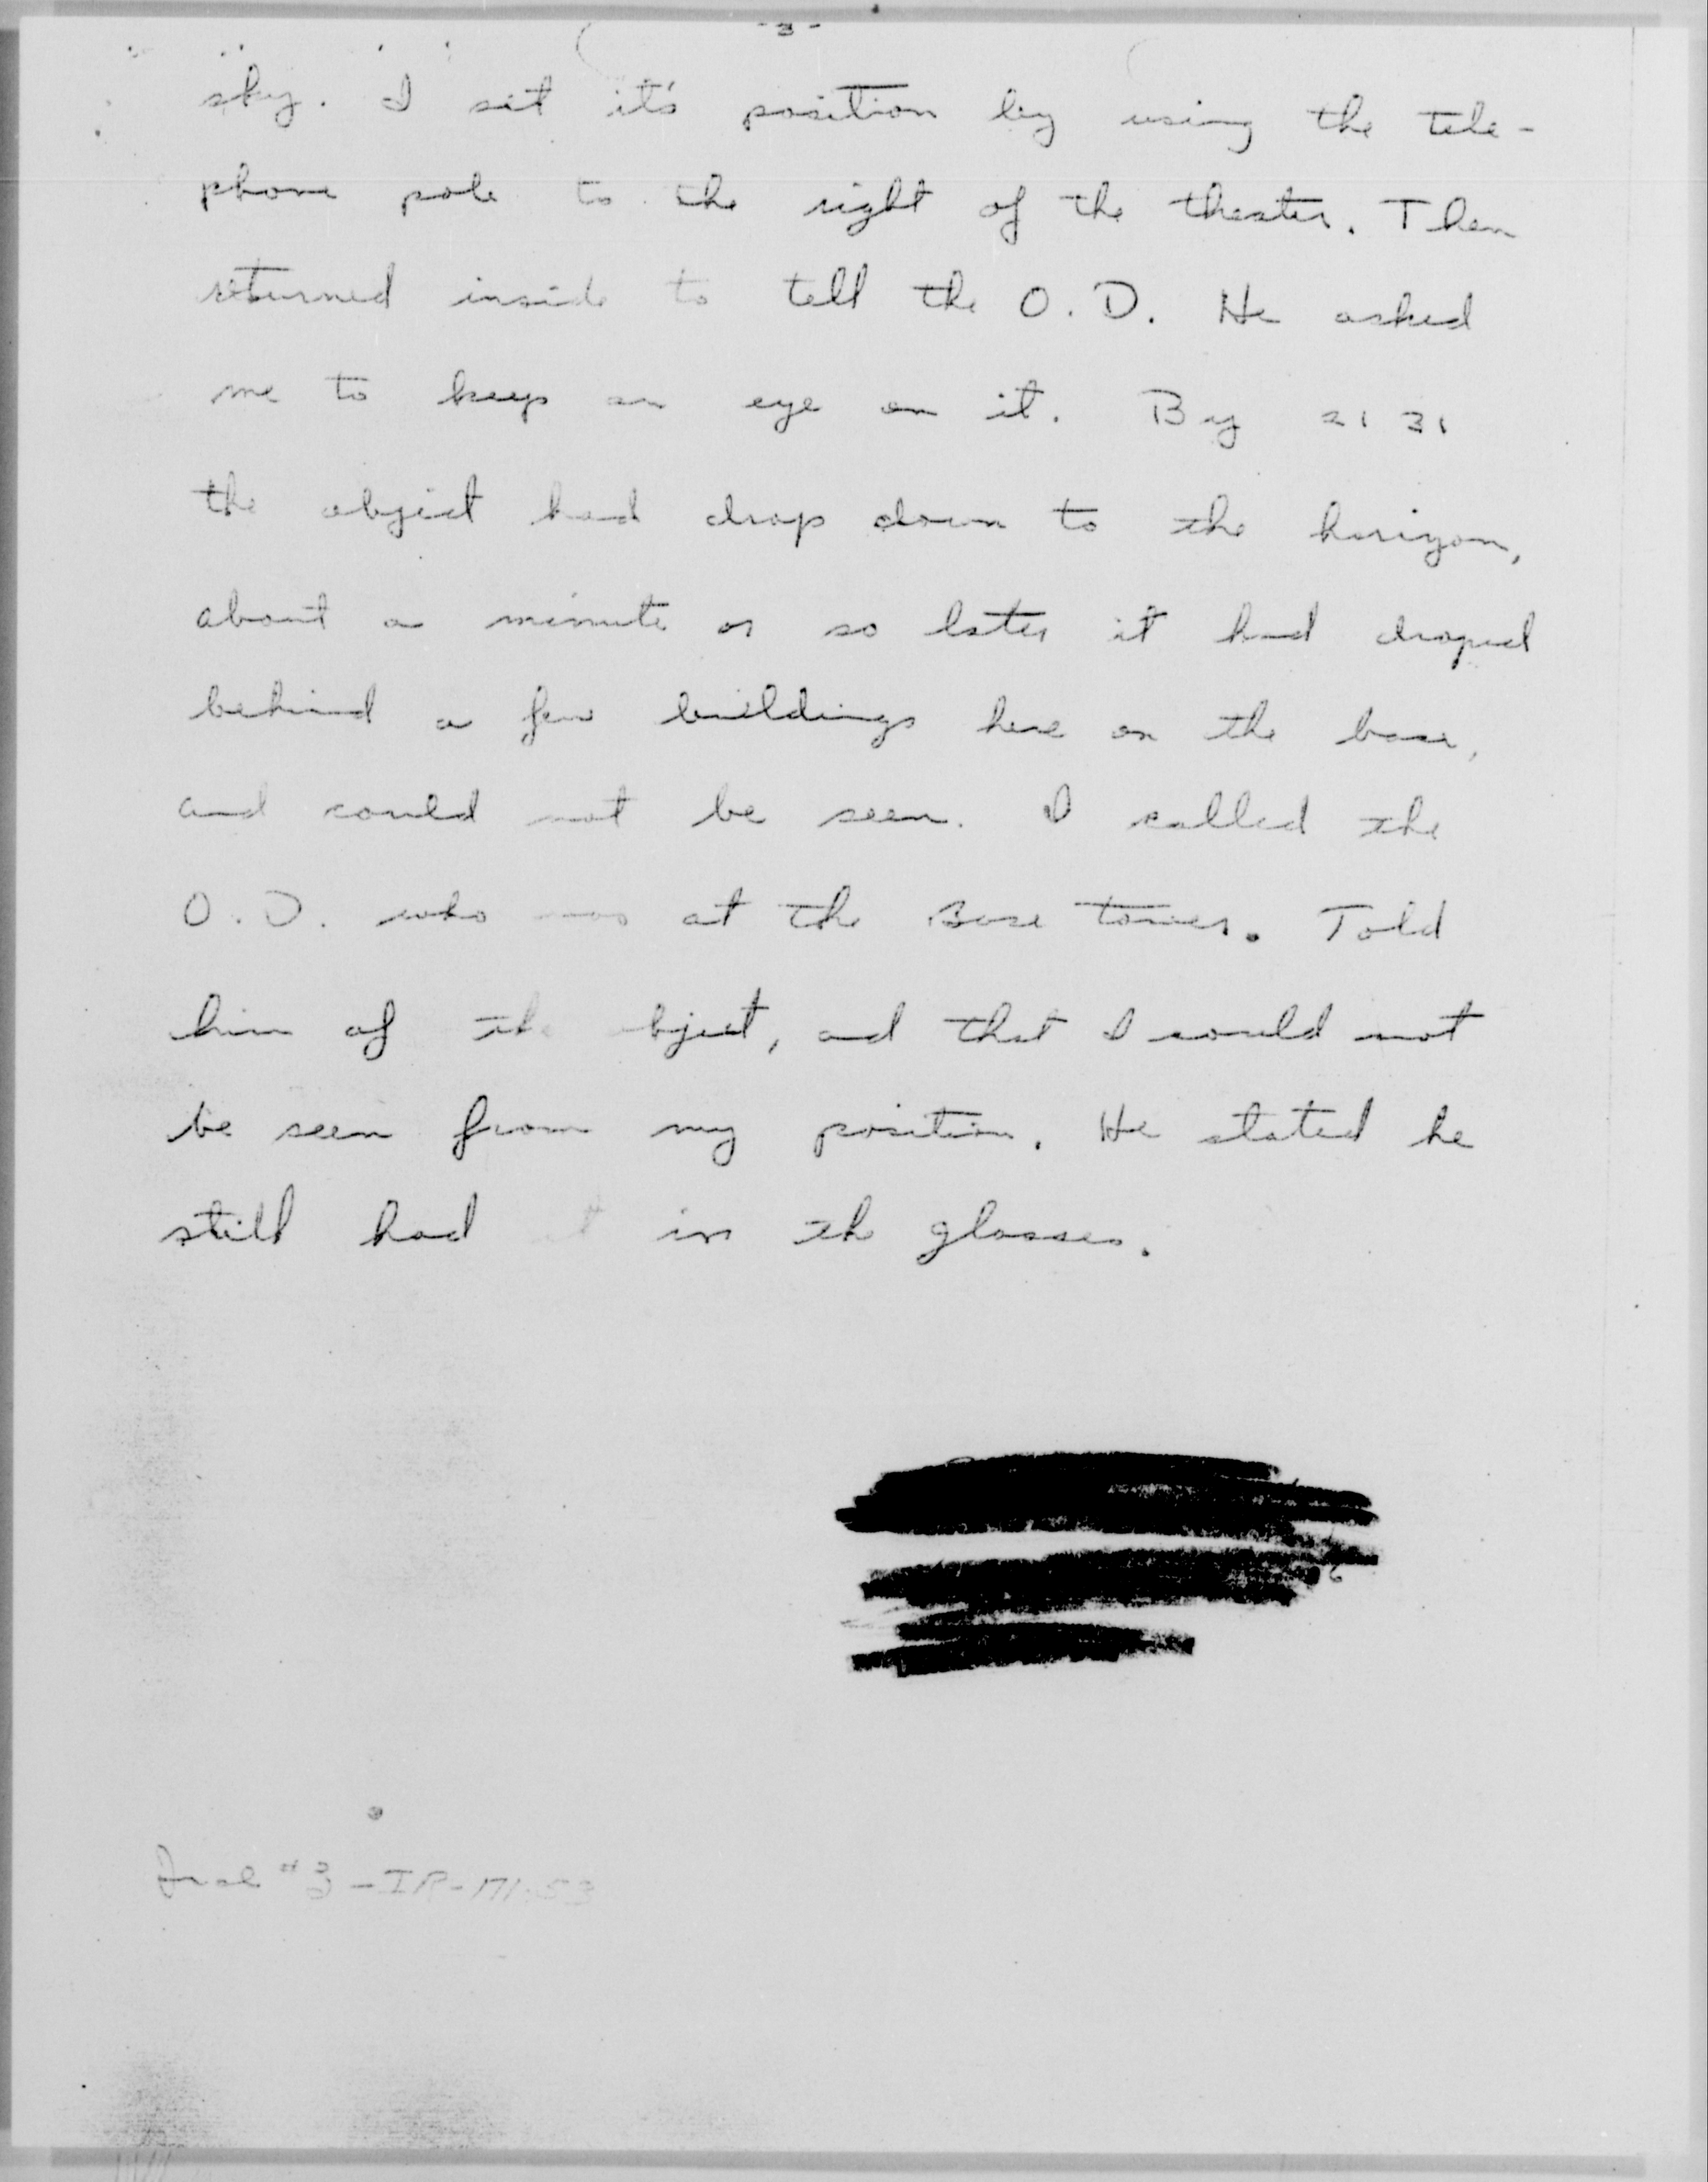 -3-
sky. I set it's position by using the tele-
phone pole to the right of the theater. Then
returned inside to tell the O.D. He asked
me to keep an eye on it. By 2131
the object had drop down to the horizon,
about a minute or so later it had droped
behind a few buildings here on the base,
and could not be seen. I called the
O.D. who was at the Base tower. Told
him of the bject, and that I could not
be seen from my position. He stated he
still had it in the glasses.
Incl #3-IR-171-53